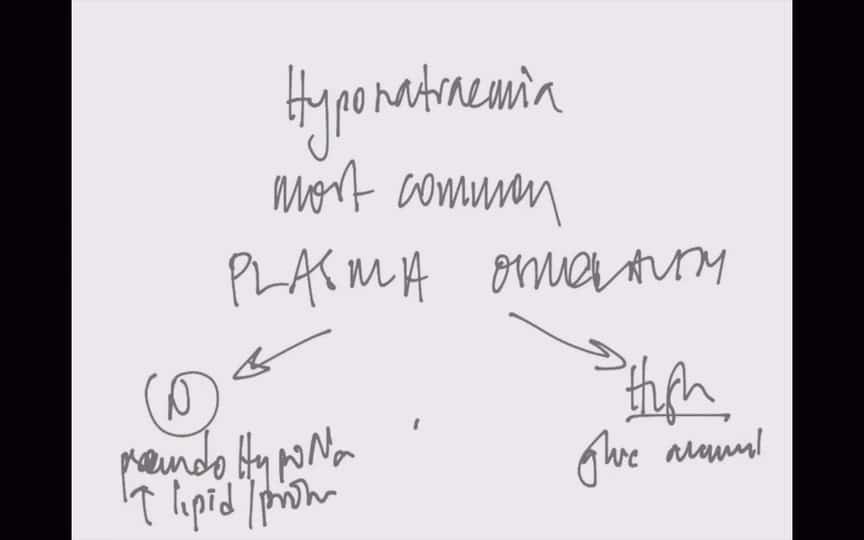 Hyponatraemia
most common
PLASMA OSMOLALITY
N
High
pseudo HypoNa
↑ lipid/protein
gluc